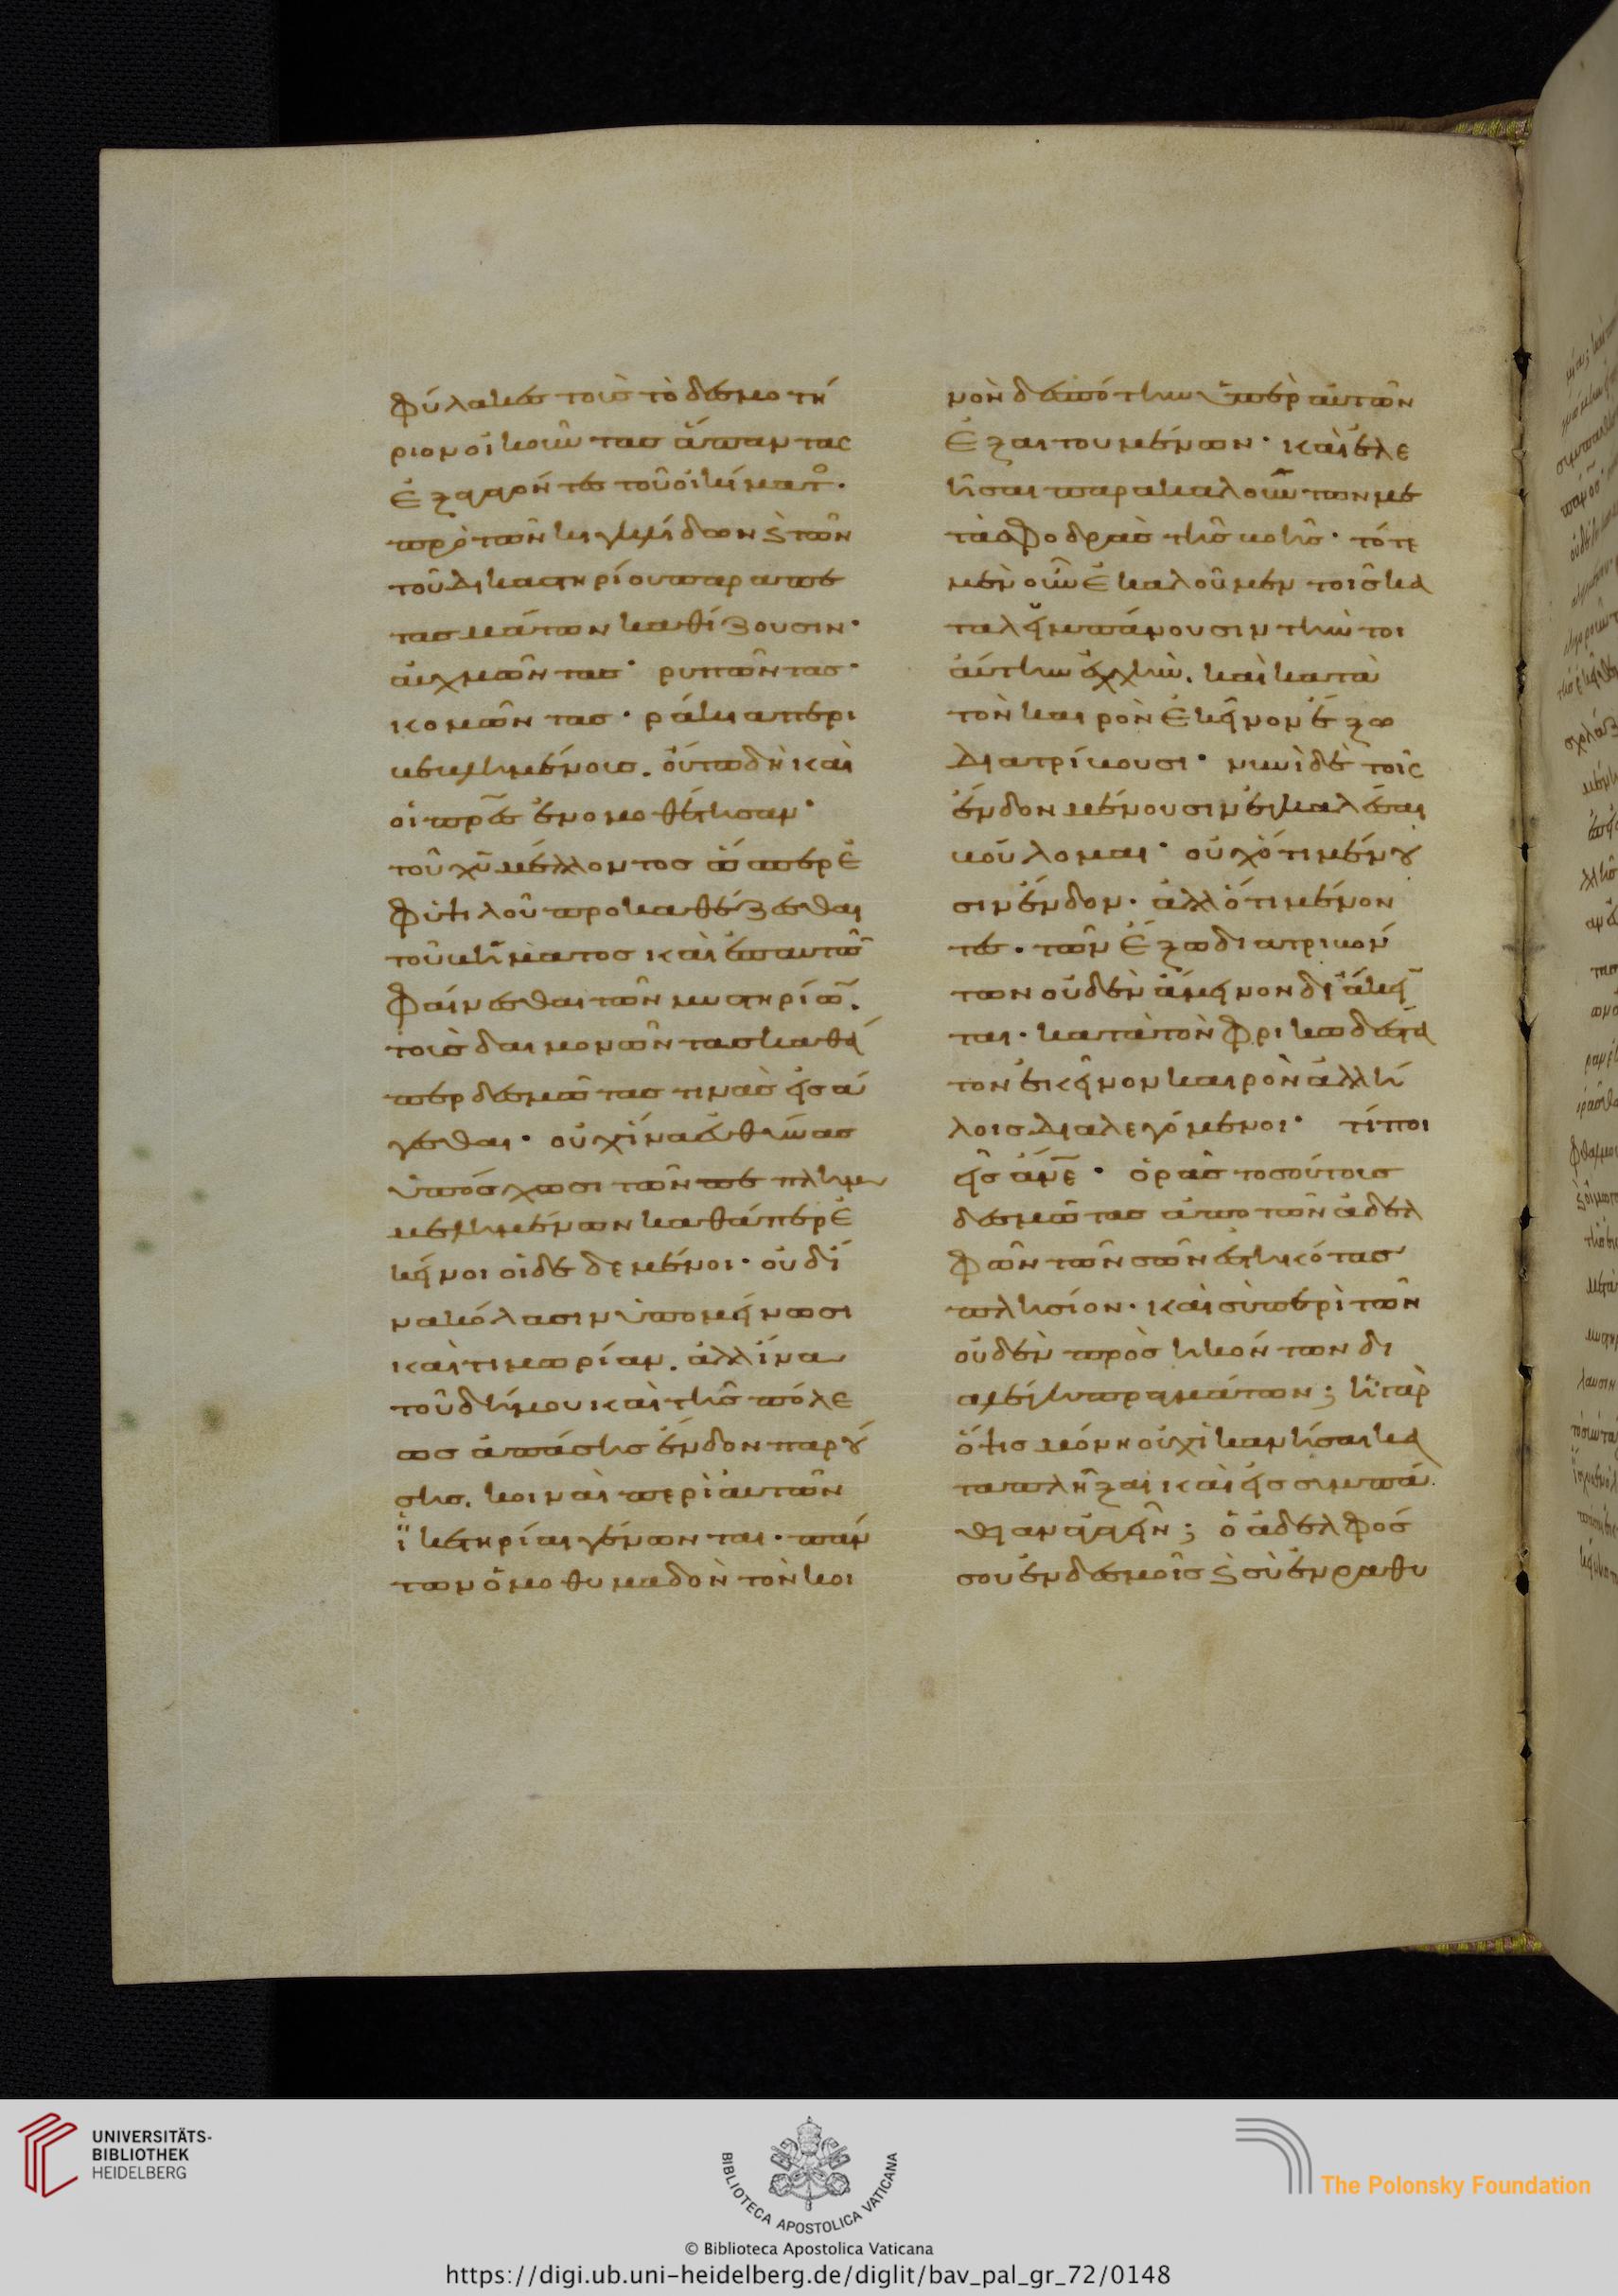 φύλακες τοὺς τὸ δεσμοτή
ριον οἰκοῦντας ἅπαντας
ἐξαγαγόντες τοῦ οἰκήματ
πρὸ τῶν κιγκλίδων ϗ τῶν
τοῦ δικαστηρίου παραπε
τασμάτων καθίζουσιν·
αὐχμῶντας· ῥυπῶντας·
κομῶντας· ῥάκια περι
βεβλημένους. οὕτω δὴ καὶ
οἱ πρες ἐνομοθέτησαν·
τοῦ χυ μέλλοντος ὥσπερ ἐ
φ' ὑψιλοῦ προκαθέζεσθαι
τοῦ βήματος καὶ ἐπ' αυτῶ
φαίνεσθαι τῶν μυστηρίω.
τοὺς δαιμονῶντας καθά
περ δεσμώτας τινὰς εἰσά
γεσθαι· οὐχ ἵνα εὐθύνας
ὑπόσχωσι τῶν πεπλημ
μελημένων καθάπερ ἐ
κεῖνοι οἱ δεδεμένοι· οὐδ' ἵ
να κόλασιν ὑπομείνωσι
καὶ τιμωρίαν. ἀλλ' ἵνα
τοῦ δήμου καὶ τῆς πόλε
ως ἁπάσης ἔνδον παρού
σης. κοιναὶ περὶ αὐτῶν
ἱκετηρίαι γένωνται· πάν
των ὁμοθυμαδὸν τὸν κοι
νὸν δεσπότην ὑπὲρ αὐτῶν
ἐξαιτουμένων· καὶ ἐλε
ῆσαι παρακαλούντων με
τὰ σφοδρᾶς τῆς βοῆς· τότε
μὲν οὖν ἐκαλοῦμεν τοῖς κα
ταλιμπάνουσιν τὴν τοι
αύτην εὐχὴν. καὶ κατὰ
τὸν καιρὸν ἐκεῖνον ἔξω
διατρίβουσι· νυνὶ δὲ τοῖς
ἔνδον μένουσιν ἐγκαλέσαι
βούλομαι· οὐχ ὅτι μένου
σιν ἔνδον· ἀλλ' ὅτι μένον
τες· τῶν ἔξω διατριβόν
των οὐδὲν ἄμεινον διάκειν
ται· κατὰ τὸν φρικωδέστα
τον ἐκεῖνον καιρὸν ἀλλή
λοις διαλεγόμενοι· τί ποι
εῖς ἄνε· ὁρᾶς τοσούτους
δεσμώτας ἀπὸ τῶν ἀδελ
φῶν τῶν σῶν ἑστηκότας
πλησίον· καὶ σὺ περὶ τῶν
οὐδὲν πρὸς ἡκόντων δι
αλέγη πραγμάτων; ἡ γὰρ
ὄψις μόνη οὐχ ἱκανήσαι κα
ταπλῆξαι καὶ εἰς συμπά
θιαν ἀγαγεῖν; ὁ ἀδελφός
σου ἐν δεσμοῖς ϗ σὺ ἐν ῥαθυ
UNIVERSITÄTS-
BIBLIOTHEK
HEIDELBERG
BIBLIOTECA APOSTOLICA VATICANA
© Biblioteca Apostolica Vaticana
The Polonsky Foundation
https://digi.ub.uni-heidelberg.de/diglit/bav_pal_gr_72/0148